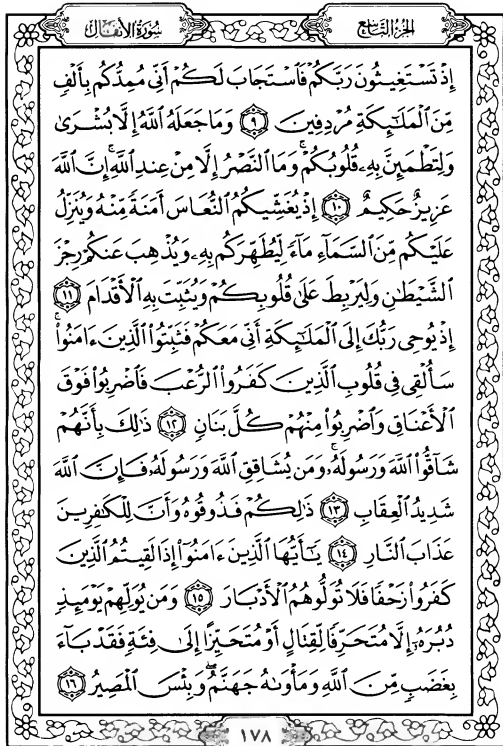 الجزء التاسع
سورة الأنفال
إِذْ تَسْتَغِيثُونَ رَبَّكُمْ فَاسْتَجَابَ لَكُمْ أَنِّي مُمِدُّكُم بِأَلْفٍ
مِّنَ الْمَلَٰٓئِكَةِ مُرْدِفِينَ ٩ وَمَا جَعَلَهُ اللَّهُ إِلَّا بُشْرَىٰ
وَلِتَطْمَئِنَّ بِهِۦ قُلُوبُكُمْ ۚ وَمَا النَّصْرُ إِلَّا مِنْ عِندِ اللَّهِ ۚ إِنَّ اللَّهَ
عَزِيزٌ حَكِيمٌ ١٠ إِذْ يُغَشِّيكُمُ النُّعَاسَ أَمَنَةً مِّنْهُ وَيُنَزِّلُ
عَلَيْكُم مِّنَ السَّمَآءِ مَآءً لِّيُطَهِّرَكُم بِهِۦ وَيُذْهِبَ عَنكُمْ رِجْزَ
الشَّيْطَٰنِ وَلِيَرْبِطَ عَلَىٰ قُلُوبِكُمْ وَيُثَبِّتَ بِهِ الْأَقْدَامَ ١١
إِذْ يُوحِى رَبُّكَ إِلَى الْمَلَٰٓئِكَةِ أَنِّي مَعَكُمْ فَثَبِّتُوا الَّذِينَ ءَامَنُوا ۚ
سَأُلْقِى فِى قُلُوبِ الَّذِينَ كَفَرُوا الرُّعْبَ فَاضْرِبُوا فَوْقَ
الْأَعْنَاقِ وَاضْرِبُوا مِنْهُمْ كُلَّ بَنَانٍ ١٢ ذَٰلِكَ بِأَنَّهُمْ
شَآقُّوا اللَّهَ وَرَسُولَهُۥ ۚ وَمَن يُشَاقِقِ اللَّهَ وَرَسُولَهُۥ فَإِنَّ اللَّهَ
شَدِيدُ الْعِقَابِ ١٣ ذَٰلِكُمْ فَذُوقُوهُ وَأَنَّ لِلْكَٰفِرِينَ
عَذَابَ النَّارِ ١٤ يَٰٓأَيُّهَا الَّذِينَ ءَامَنُوٓا إِذَا لَقِيتُمُ الَّذِينَ
كَفَرُوا زَحْفًا فَلَا تُوَلُّوهُمُ الْأَدْبَارَ ١٥ وَمَن يُوَلِّهِمْ يَوْمَئِذٍ
دُبُرَهُۥٓ إِلَّا مُتَحَرِّفًا لِّقِتَالٍ أَوْ مُتَحَيِّزًا إِلَىٰ فِئَةٍ فَقَدْ بَآءَ
بِغَضَبٍ مِّنَ اللَّهِ وَمَأْوَىٰهُ جَهَنَّمُ ۖ وَبِئْسَ الْمَصِيرُ ١٦
١٧٨